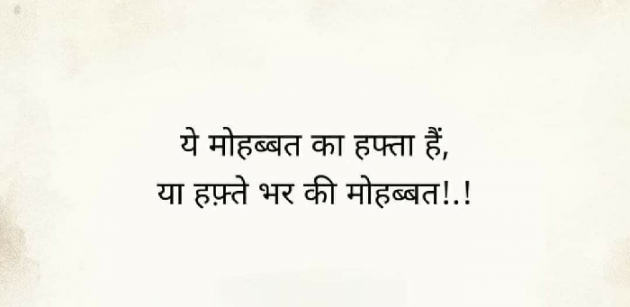 ये मोहब्बत का हफ्ता हैं,
या हफ़्ते भर की मोहब्बत!.!